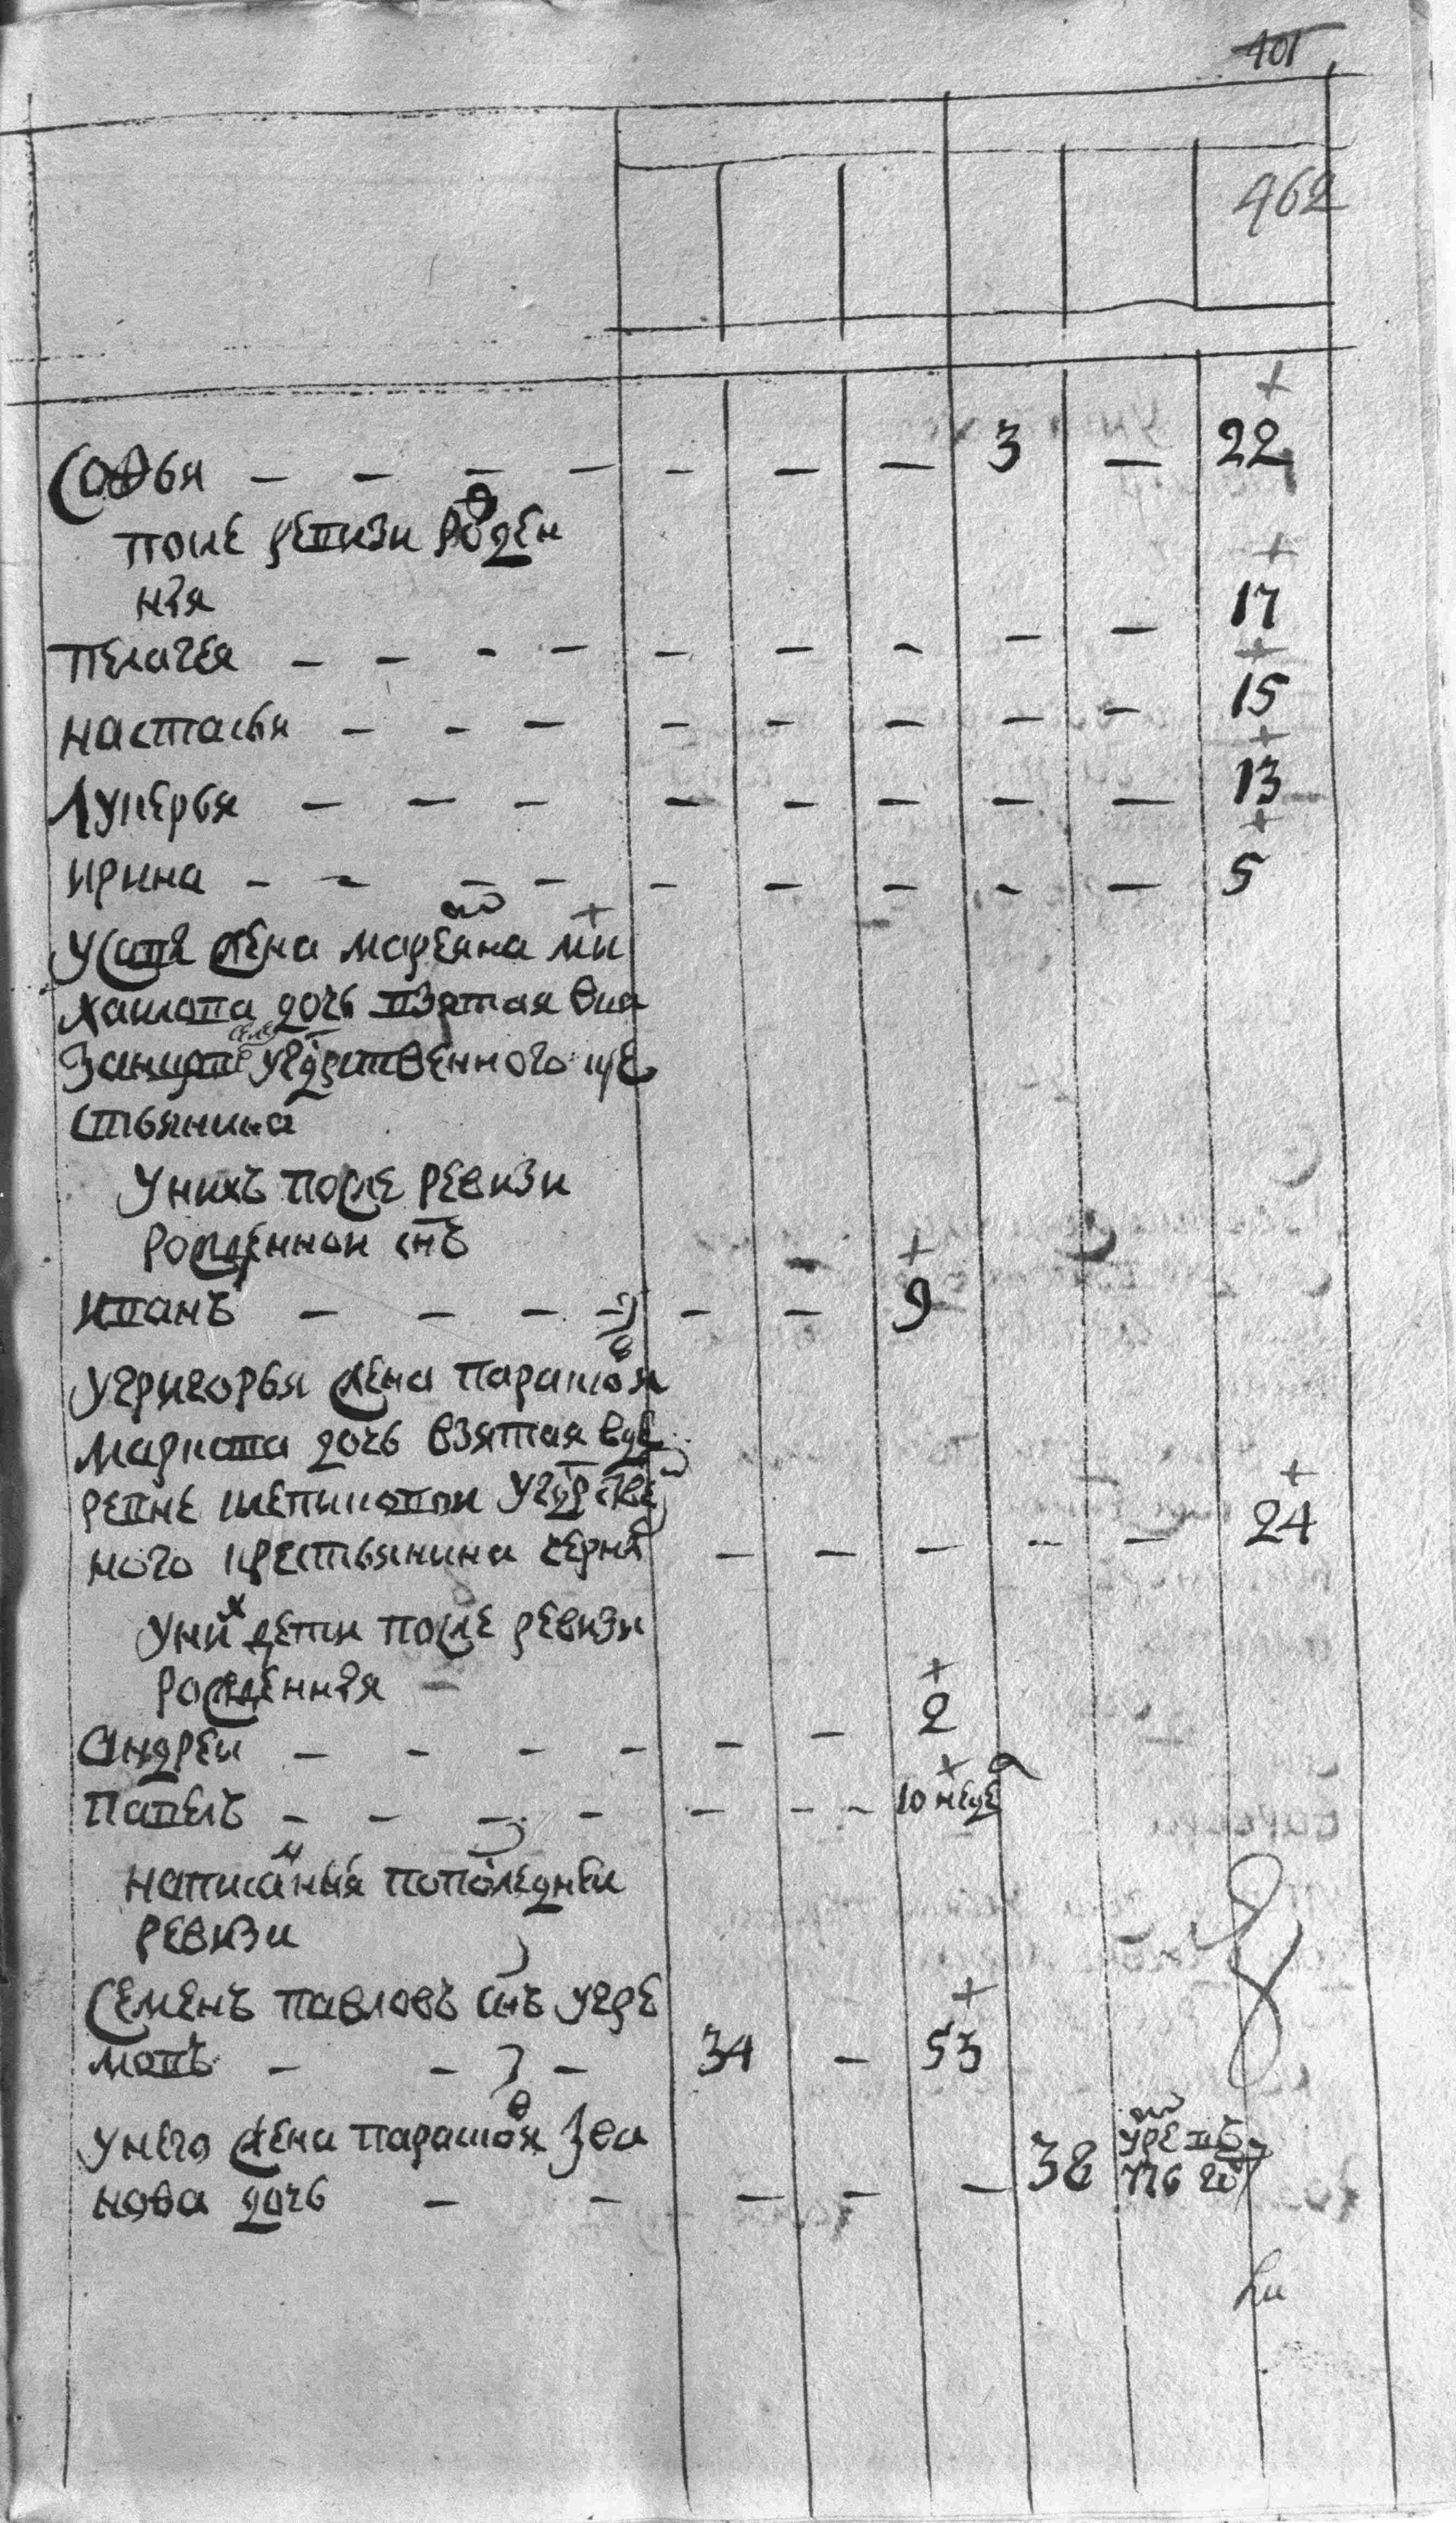 401
462
Софья — — — — — — — 3 — 22
после ревизи рожден
ныя
Пелагея — — — — — — — — — 17
Настасья — — — — — — — — 15
Лукерья — — — — — — — — 13
Ирина — — — — — — — — — 5
жена Марьяна Ми
хайлова дочь взятая
ственного кре
стьянина
у нихъ после ревизи
рожденной снъ
Иванъ — — — — — — 9
у Григорья жена Парасковья
Маркова дочь взятая в де
ревне
ного крестьянина — — — — — 24
у них дети после ревизи
рожденныя
Андрей — — — — — — 2
Павелъ — — — — — — — 10 неде
написанныя по последней
ревизи
Семенъ Павловъ снъ
мовъ — — — 34 — 53
у него жена Парасковья
нова дочь — — — — — 38 776 го